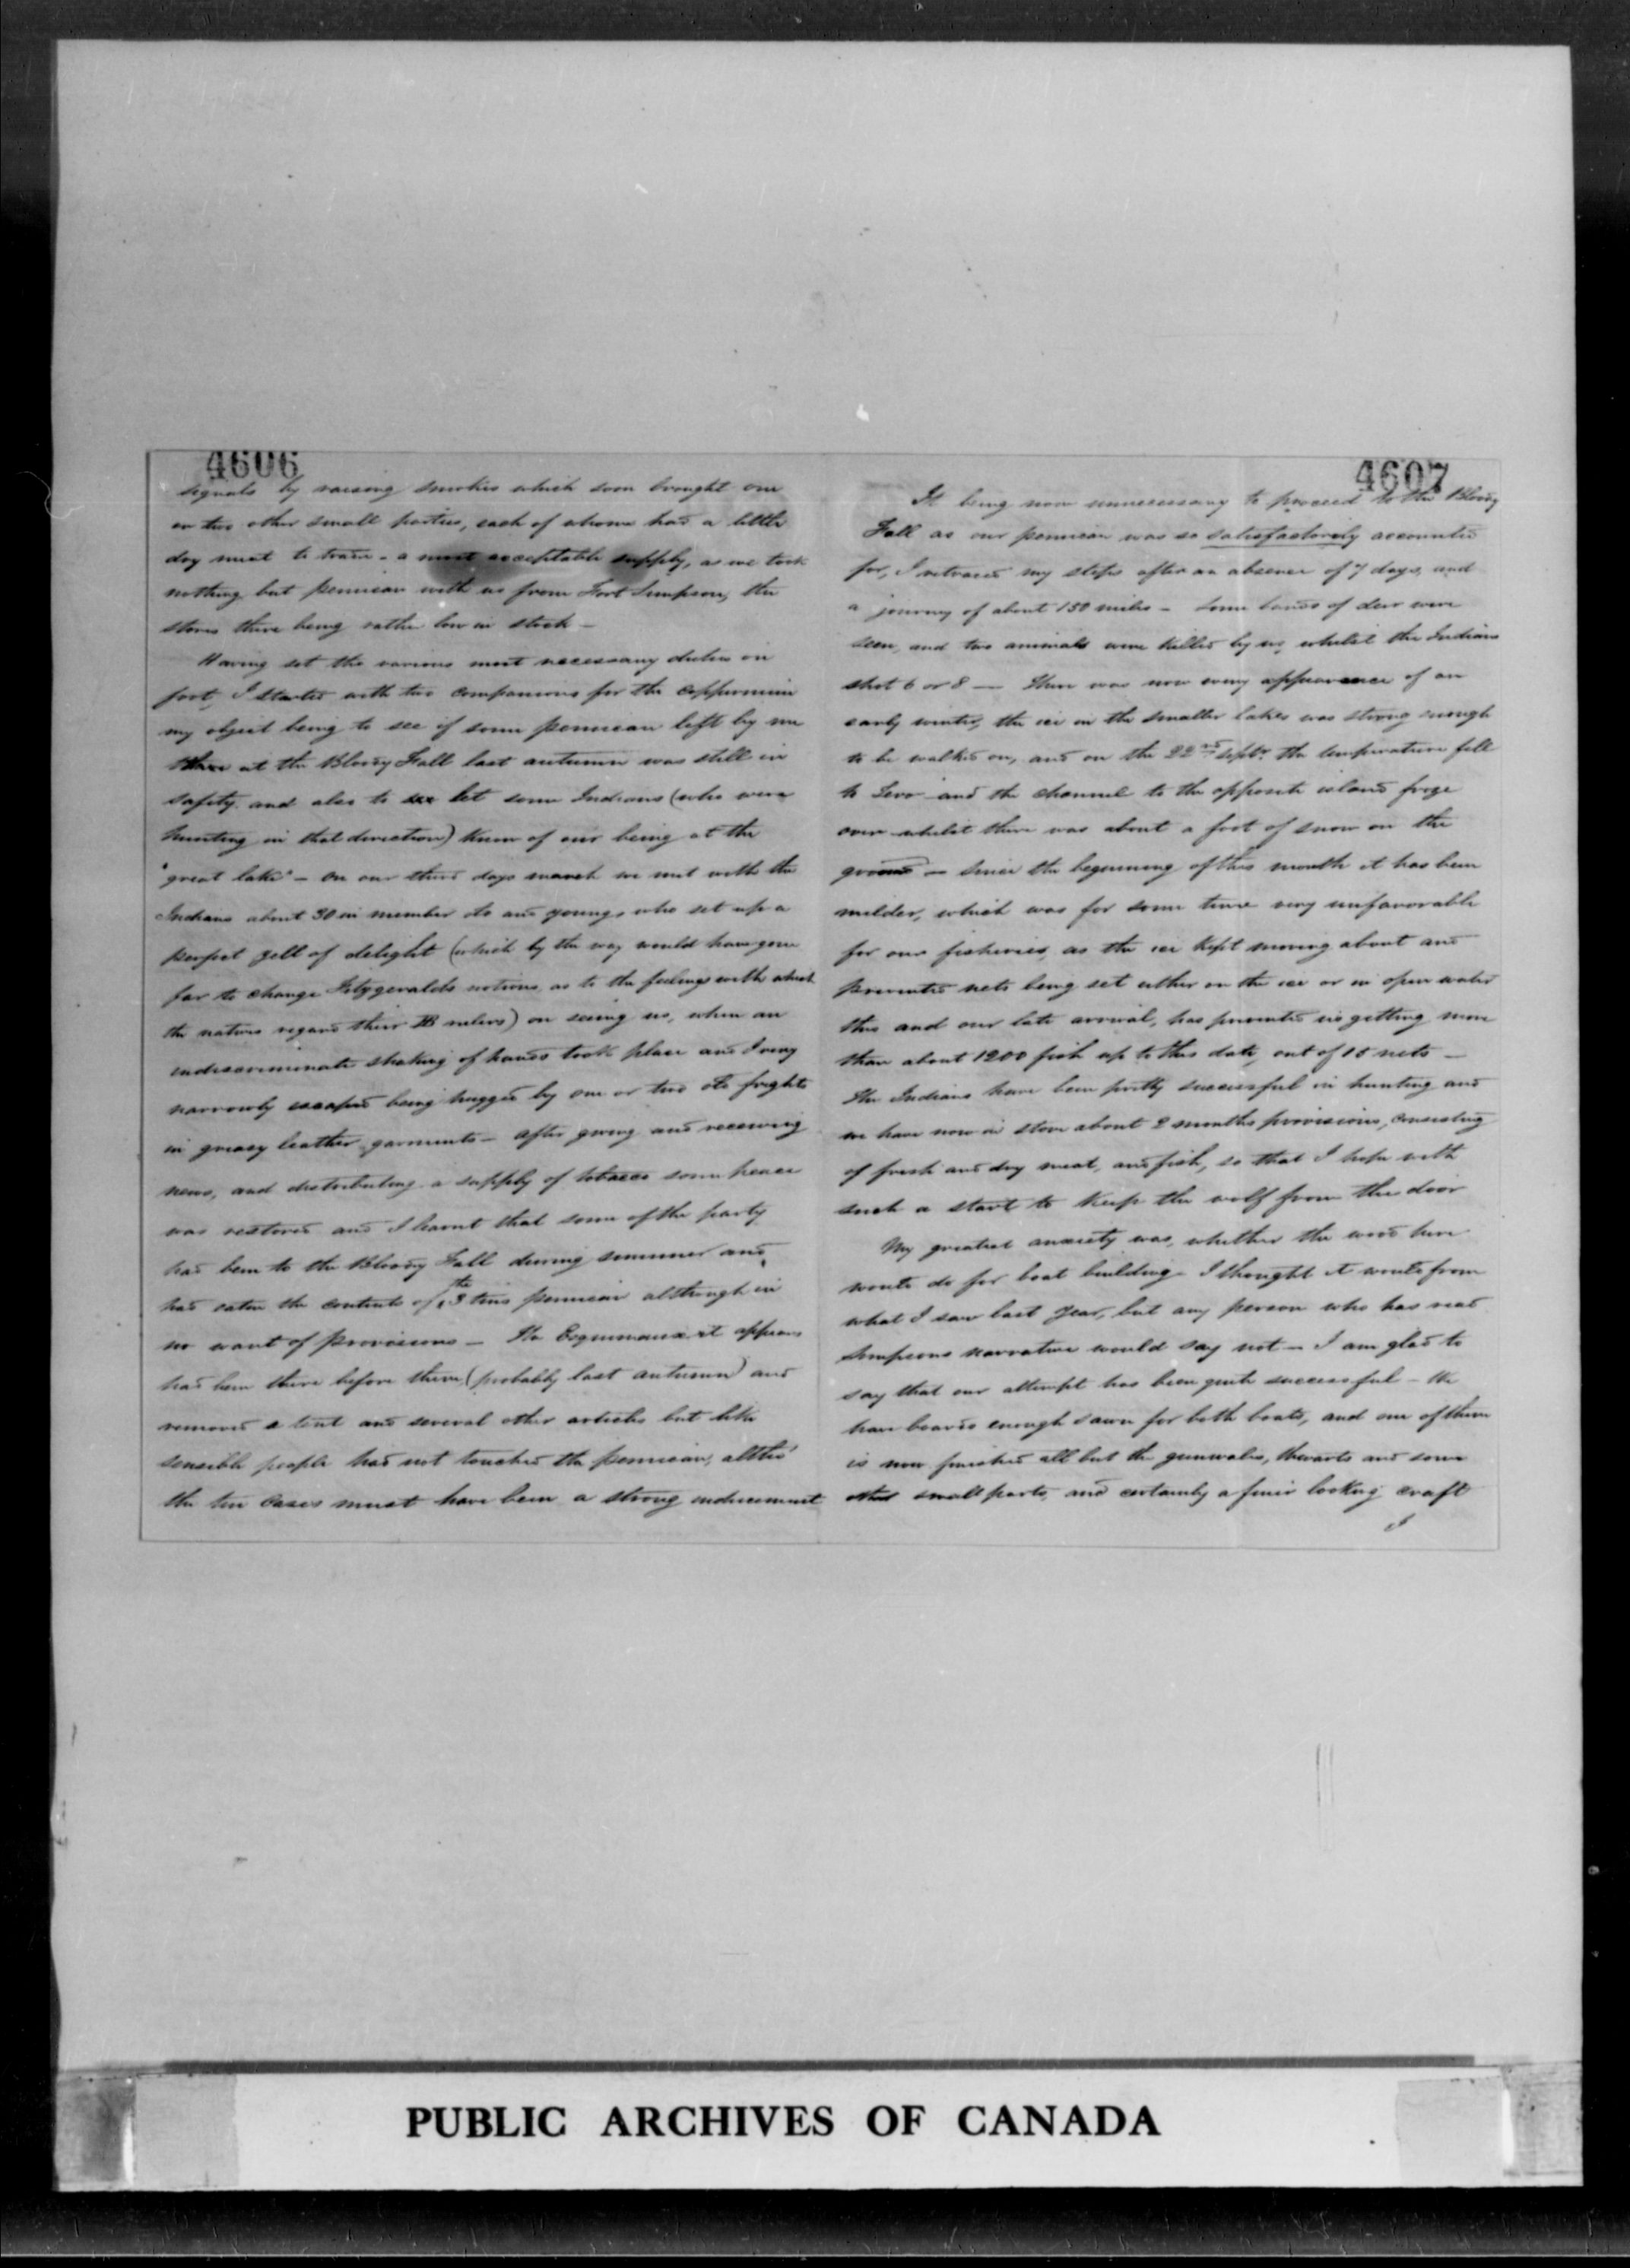 4606
signals by raising smokes which soon brought one
or two other small parties, each of whom had a little
dry meat to trade - a most acceptable supply, as we took
nothing but pemican with us from Fort Simpson, the
stores there being rather low in stock -
Having set the various most necessary duties on
foot, I started with two companions for the Coppermine
my object being to see if some pemican left by me
there at the Bloody Fall last autumn was still in
safety and also to let some Indians (who were
hunting in that direction) know of our being at the
"great lake" - On our third days march we met with the
Indians about 30 in number old and young, who set up a
perfect yell of delight (which by the way would have gone
far to change Fitzgeralds notions as to the feelings with which
the natives regard their HB rulers) on seeing us, when an
indiscriminate shaking of hands took place and I very
narrowly escaped being hugged by one or two old frights
in greasy leather garments - After giving and receiving
news, and distributing a supply of tobacco some peace
was restored and I learnt that some of the party
had been to the Bloody Fall during summer and
had eaten the contents of the 3 tins pemican although in
no want of provisions - The Esquimaux it appears
had been there before them (probably last autumn) and
removed a tent and several other articles but like
sensible people had not touched the pemican, altho'
the tin cases must have been a strong inducement
4607
It being now unnecessary to proceed to the Bloody
Fall as our pemican was so satisfactorily accounted
for, I retraced my steps after an absence of 7 days, and
a journey of about 150 miles - Some bands of deer were
seen, and two animals were killed by us, whilst the Indians
shot 6 or 8 - There was now every appearance of an
early winter, the ice on the smaller lakes was strong enough
to be walked on, and on the 22nd Septr. the temperature fell
to Zero and the channel to the opposite island froze
over whilst there was about a foot of snow on the
ground - Since the beginning of this month it has been
milder, which was for some time very unfavorable
for our fisheries, as the ice kept moving about and
prevented nets being set either on the ice or in open water
this and our late arrival, has prevented us getting more
than about 1200 fish up to this date, out of 15 nets -
The Indians have been pretty successful in hunting and
we have now in store about 2 months provisions, consisting
of fresh and dry meat, and fish, so that I hope with
such a start to keep the wolf from the door
My greatest anxiety was, whether the wood here
would do for boat building - I thought it would from
what I saw last year, but any person who has read
Simpsons narrative would say not - I am glad to
say that our attempt has been quite successful - We
have boards enough sawn for both boats, and one of them
is now finished all but the gunwales, thwarts and some
other small parts, and certainly a finer looking craft
I
PUBLIC ARCHIVES OF CANADA